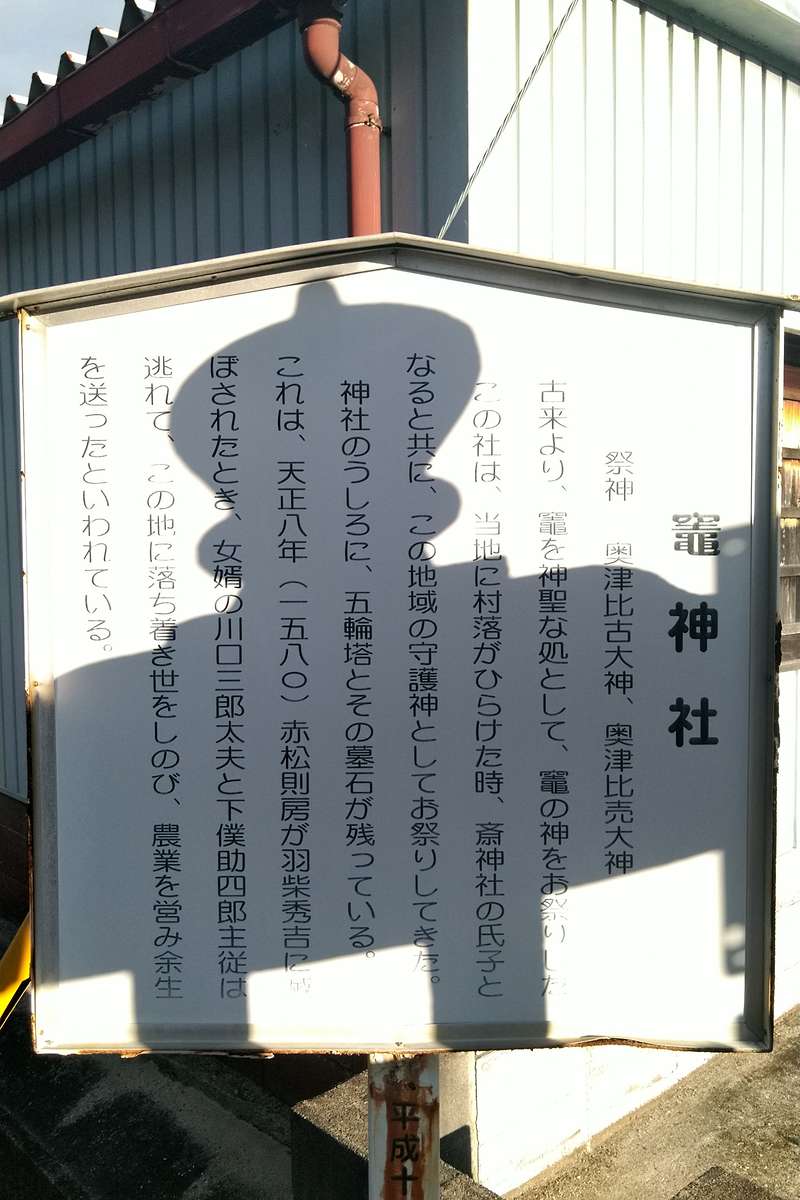 竈神社
祭神　奥津比古大神、奥津比売大神
古来より、竈を神聖な処として、竈の神をお祭りした
この社は、当地に村落がひらけた時、斎神社の氏子と
なると共に、この地域の守護神としてお祭りしてきた。
神社のうしろに、五輪塔とその墓石が残っている。
これは、天正八年（一五八〇）赤松則房が羽柴秀吉に滅
ぼされたとき、女婿の川口三郎太夫と下僕助四郎主従は
逃れて、この地に落ち着き世をしのび、農業を営み余生
を送ったといわれている。
平成十